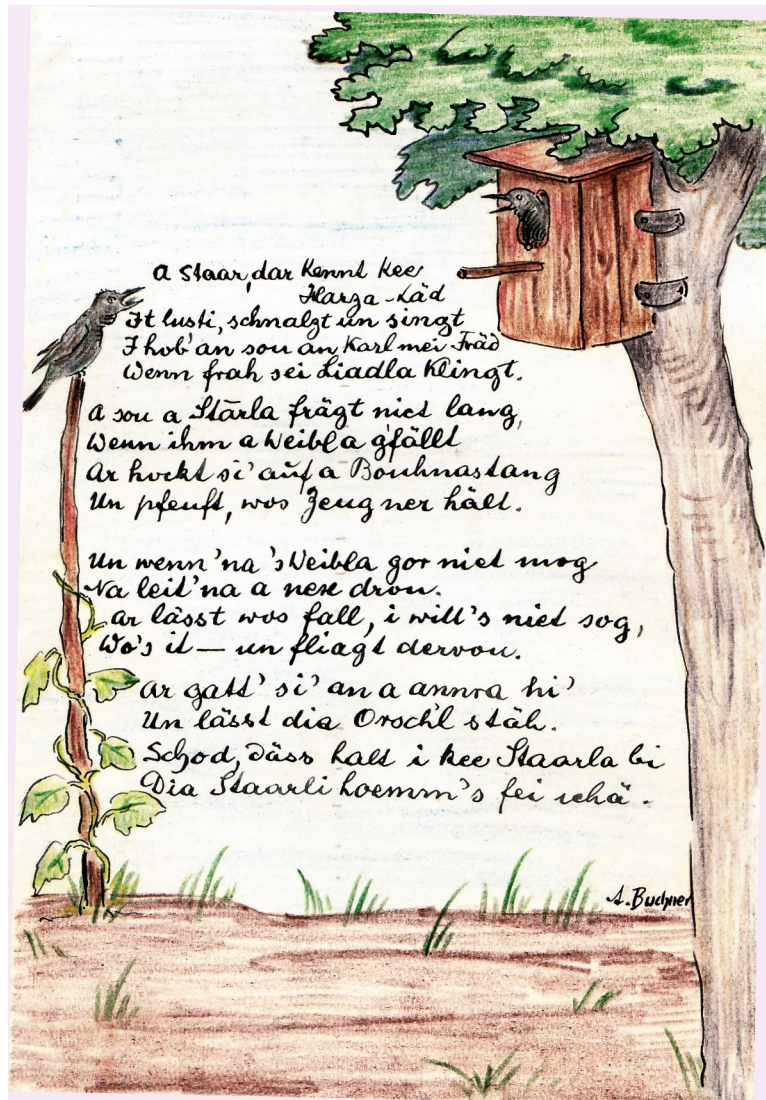 A Staar, dar kennt kee
Harza-Läd
It lusti, schnalzt un singt
I hob' an sou an Karl mei Fräd
Wenn frah sei Liadla klingt.
A sou a Stärla frägt niet lang,
Wenn ihm a Weibla g'fällt
Ar hockt si' auf a Bouhnastang
Un pfeuft, wos Zeug ner hält.
Un wenn 'na 's Weibla gor niet mog
Na leit 'na a nex drou.
Ar lässt wos fall, i will's niet sog,
Wo's it — un fliagt dervou.
Ar gatt' si' an a annra hi'
Un lässt dia Orschl stäh.
Schod, däss halt i kee Staarla bi
Dia Staarli hoemm's fei schä.
A. Buchner